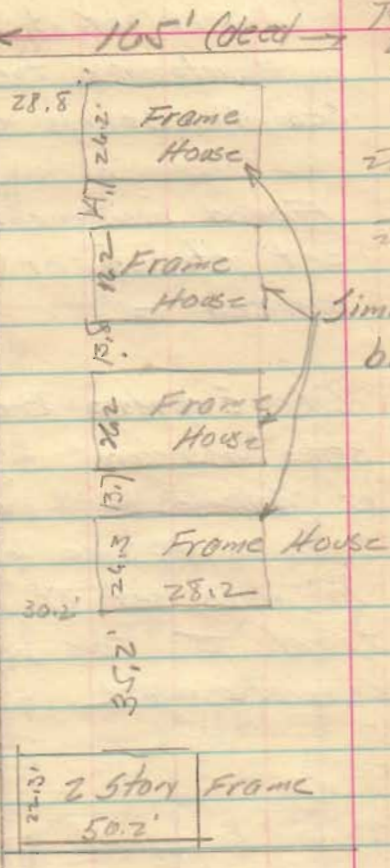 165' (deed
28.8'
26.2'
Frame
House
14.1
26.2
Frame
House
13.8
26.2
Frame
House
13.7
26.3
Frame House
28.2
30.2'
35.2'
22.3'
2 Story Frame
50.2'